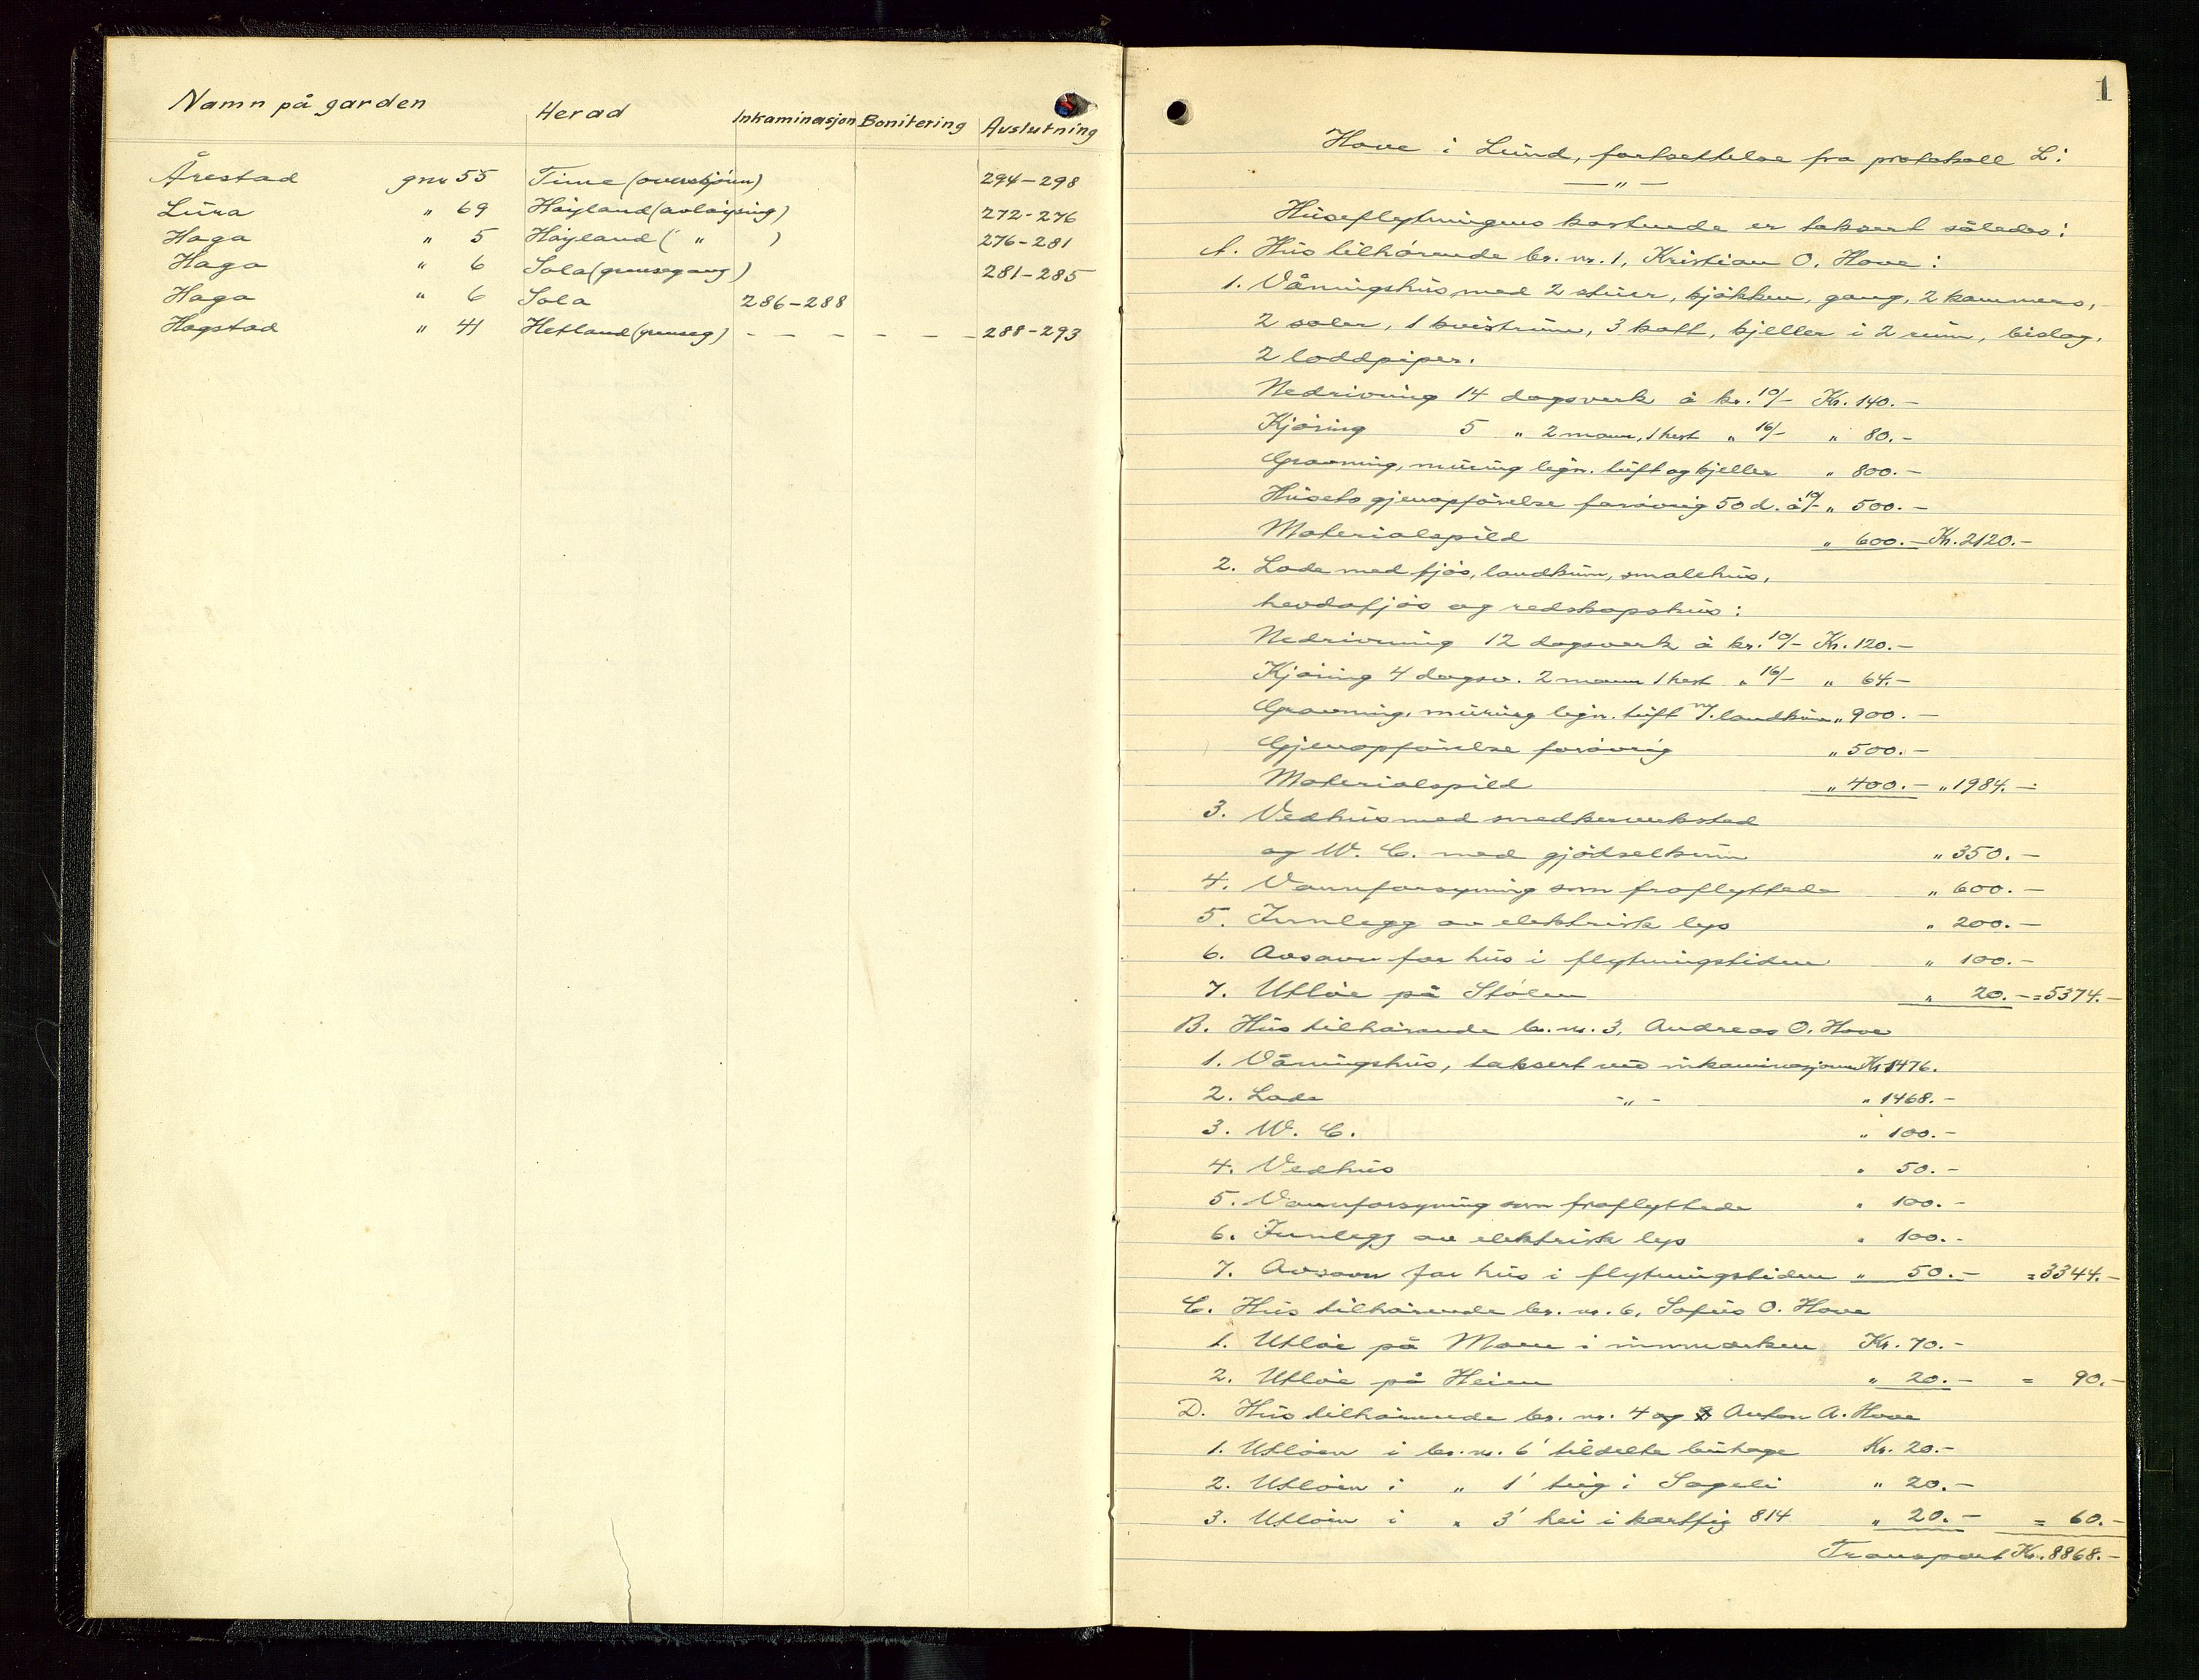 Namn på garden Herad Inkaminasjon Bonitering Avslutning
Årestad gnr 55 Time (overskjönn) 294-298
Lura " 69 Höyland (avlöysing) 272-276
Haga " 5 Höyland ( " ) 276-281
Haga " 6 Sola (grensegang) 281-285
Haga " 6 Sola 286-288
Hogstad " 41 Hetland (grenseg) - - - - - - 288-293
1
Hove i Lund, fortsettelse fra protokoll L:
— " —
Huseflytningens kostende er taksert således:
A. Hus tilhörende br. nr. 1, Kristian O. Hove:
1. Våningshus med 2 stuer, kjökken, gang, 2 kammers, -
2 saler, 1 kvistrum, 3 kott, kjeller i 2 rum, bislag,
2 loddpiper.
Nedrivning 14 dagsverk à kr. 10/- Kr. 140.-
Kjöring 5 " 2 mann, 1 hest " 16/- " 80.-
Gravning, muring legn. tuft og kjeller " 800.-
Husets gjenopförelse forövrig 50 d. à 10/- " 500.-
Materialspild " 600.- Kr. 2120.-
2. Lade med fjös, landkum, smalehus,
hevdafjös og redskapshus:
Nedrivning 12 dagsverk à kr. 10/- Kr. 120.-
Kjöring 4 dagsv. 2 mann 1 hest " 16/- " 64.-
Gravning, muring legn. tuft m/. landkum " 900.-
Gjenopförelse forövrig " 500.-
Materialspild " 400.- " 1984.-
3. Vedhus med snedkerverksted
og W. C. med gjödselkum " 350.-
4. Vannforsyning som fraflyttede " 600.-
5. Innlegg av elektrisk lys " 200.-
6. Avsavn for hus i flytningstiden " 100.-
7. Utlöe på Stölen " 20.- = 5374.-
B. Hus tilhörende br. nr. 3, Andreas O. Hove
1. Våningshus, taksert ved inkaminasjonen Kr. 1476.
2. Lade -"- " 1468.-
3. W. C. " 100.-
4. Vedhus " 50.-
5. Vannforsyning som fraflyttede " 100.-
6. Innlegg av elektrisk lys " 100.-
7. Avsavn for hus i flytningstiden " 50.- = 3344.-
C. Hus tilhörende br. nr. 6, Sofus O. Hove
1. Utlöe på Moen i innmarken Kr. 70.-
2. Utlöe på Heien " 20.- = 90.-
D. Hus tilhörende br. nr. 4 og 8 Anton A. Hove
1. Utlöen i br. nr. 6' tildelte buhage Kr. 20.-
2. Utlöen i " 1' teig i Sageli " 20.-
3. Utlöen i " 3' hei i kartfig 814 " 20.- = 60.-
Transport Kr. 8868.-